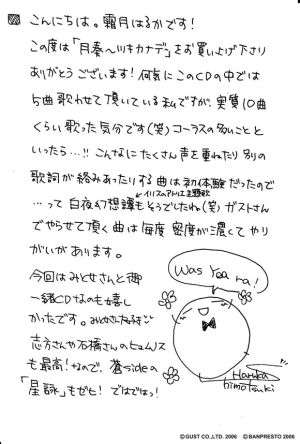 こんにちは。霜月はるかです!
この度は「月奏〜ツキカナデ」をお買い上げ下さり
ありがとうございます! 何気にこのCDの中では
5曲歌わせて頂いている私ですが、実質10曲
くらい歌った気分です(笑) コーラスの多いことと
いったら…!! こんなにたくさん声を重ねたり別の
歌詞が絡みあったりする曲は初体験だったので
…って白夜幻想譚もそうでしたね(笑) ガストさん
イリスのアトリエ主題歌
でやらせて頂く曲は毎度密度が濃くてやり
がいがあります。
今回はみとせさんと御
一緒CDなのも嬉し
かったです。みとせさん
志方さんや石橋さんのヒュムノス
も最高! なので、蒼sideの
「星詠」もぜひ! ではではっ!
Was yea ra!
Haruka
Shimotsuki
©GUST CO.,LTD. 2006 ©BANPRESTO 2006